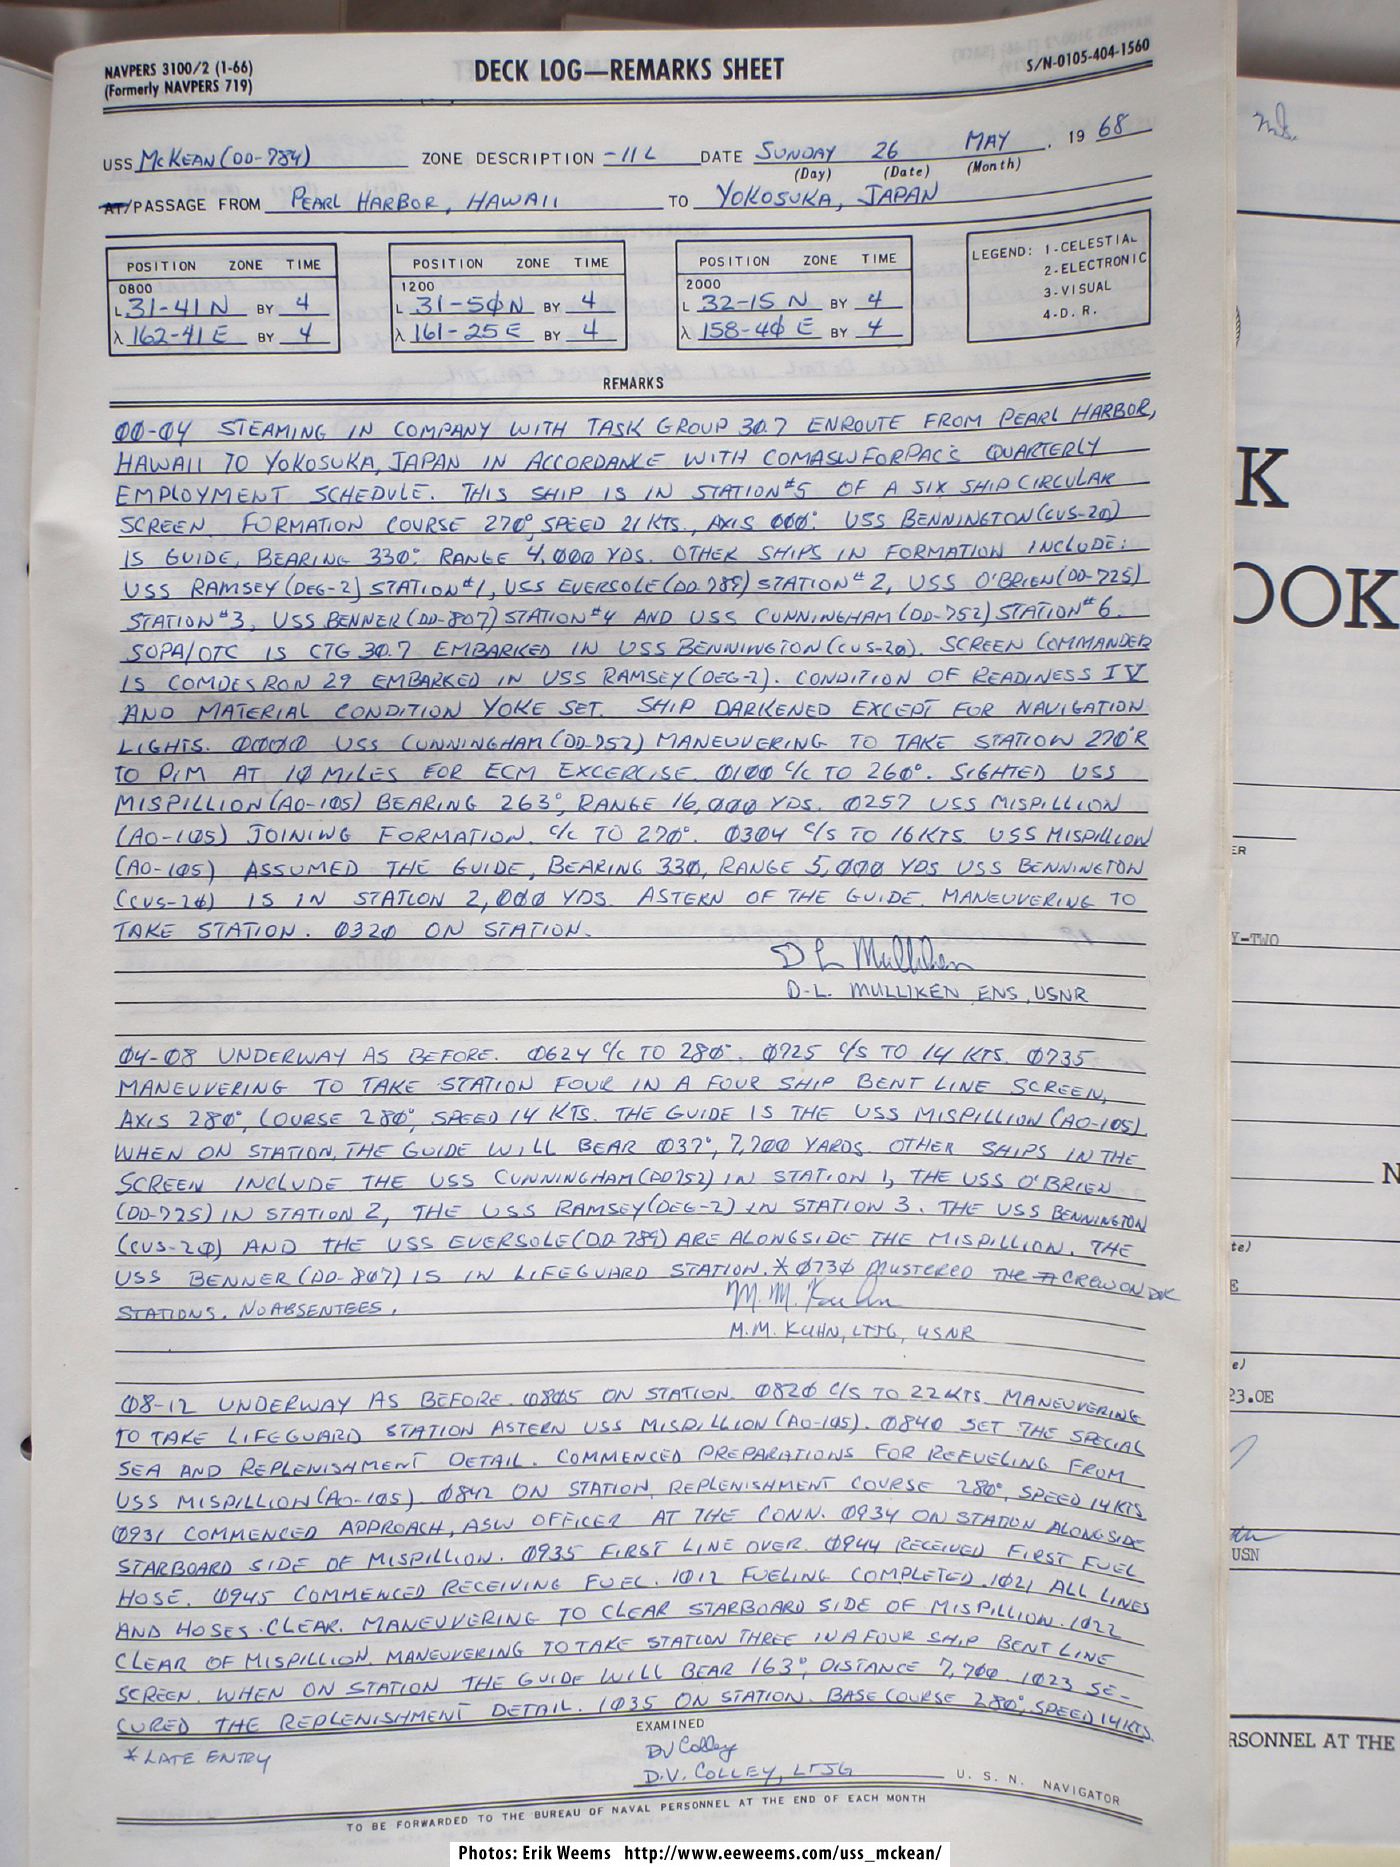 NAVPERS 3100/2 (1-66)
(Formerly NAVPERS 719)
DECK LOG—REMARKS SHEET
S/N-0105-404-1560
USS McKEAN (DD-784) ZONE DESCRIPTION -11 L DATE SUNDAY 26 MAY 19 68
(Day) (Date) (Month)
AT/PASSAGE FROM PEARL HARBOR, HAWAII TO YOKOSUKA, JAPAN
POSITION ZONE TIME
0800
L 31-41 N BY 4
λ 162-41 E BY 4
POSITION ZONE TIME
1200
L 31-50 N BY 4
λ 161-25 E BY 4
POSITION ZONE TIME
2000
L 32-15 N BY 4
λ 158-40 E BY 4
LEGEND: 1-CELESTIAL
2-ELECTRONIC
3-VISUAL
4-D.R.
REMARKS
00-04 STEAMING IN COMPANY WITH TASK GROUP 30.7 ENROUTE FROM PEARL HARBOR,
HAWAII TO YOKOSUKA, JAPAN IN ACCORDANCE WITH COMASWFORPAC'S QUARTERLY
EMPLOYMENT SCHEDULE. THIS SHIP IS IN STATION #5 OF A SIX SHIP CIRCULAR
SCREEN. FORMATION COURSE 270°, SPEED 21 KTS., AXIS 000°. USS BENNINGTON (CVS-20)
IS GUIDE, BEARING 330°. RANGE 4,000 YDS. OTHER SHIPS IN FORMATION INCLUDE:
USS RAMSEY (DEG-2) STATION #1, USS EVERSOLE (DD-789) STATION #2, USS O'BRIEN (DD-725)
STATION #3, USS BENNER (DD-807) STATION #4 AND USS CUNNINGHAM (DD-752) STATION #6.
SOPA/OTC IS CTG 30.7 EMBARKED IN USS BENNINGTON (CVS-20). SCREEN COMMANDER
IS COMDESRON 29 EMBARKED IN USS RAMSEY (DEG-2). CONDITION OF READINESS IV
AND MATERIAL CONDITION YOKE SET. SHIP DARKENED EXCEPT FOR NAVIGATION
LIGHTS. 0000 USS CUNNINGHAM (DD-752) MANEUVERING TO TAKE STATION 270°R
TO PIM AT 10 MILES FOR ECM EXCERCISE. 0100 C/C TO 260°. SIGHTED USS
MISPILLION (AO-105) BEARING 263°, RANGE 16,000 YDS. 0257 USS MISPILLION
(AO-105) JOINING FORMATION. C/C TO 270°. 0304 C/S TO 16 KTS. USS MISPILLION
(AO-105) ASSUMED THE GUIDE, BEARING 330, RANGE 5,000 YDS USS BENNINGTON
(CVS-20) IS IN STATION 2,000 YDS. ASTERN OF THE GUIDE. MANEUVERING TO
TAKE STATION. 0320 ON STATION.
D L Mulliken
D.L. MULLIKEN ENS, USNR
04-08 UNDERWAY AS BEFORE. 0624 C/C TO 280°. 0725 C/S TO 14 KTS. 0735
MANEUVERING TO TAKE STATION FOUR IN A FOUR SHIP BENT LINE SCREEN,
AXIS 280°, COURSE 280°, SPEED 14 KTS. THE GUIDE IS THE USS MISPILLION (AO-105)
WHEN ON STATION, THE GUIDE WILL BEAR 037°, 7,700 YARDS. OTHER SHIPS IN THE
SCREEN INCLUDE THE USS CUNNINGHAM (DD752) IN STATION 1, THE USS O'BRIEN
(DD-725) IN STATION 2, THE USS RAMSEY (DEG-2) IN STATION 3. THE USS BENNINGTON
(CVS-20) AND THE USS EVERSOLE (DD 789) ARE ALONGSIDE THE MISPILLION. THE
USS BENNER (DD-807) IS IN LIFEGUARD STATION. * 0730 MUSTERED THE CREW ON DCK
STATIONS. NO ABSENTEES.
M. M. Kuhn
M.M. KUHN, LTJG, USNR
08-12 UNDERWAY AS BEFORE. 0805 ON STATION. 0820 C/S TO 22 KTS. MANEUVERING
TO TAKE LIFEGUARD STATION ASTERN USS MISPILLION (AO-105). 0840 SET THE SPECIAL
SEA AND REPLENISHMENT DETAIL. COMMENCED PREPARATIONS FOR REFUELING FROM
USS MISPILLION (AO-105). 0842 ON STATION, REPLENISHMENT COURSE 280°, SPEED 14 KTS
0931 COMMENCED APPROACH, ASW OFFICER AT THE CONN. 0934 ON STATION ALONGSIDE
STARBOARD SIDE OF MISPILLION. 0935 FIRST LINE OVER. 0944 RECEIVED FIRST FUEL
HOSE. 0945 COMMENCED RECEIVING FUEL. 1012 FUELING COMPLETED. 1021 ALL LINES
AND HOSES CLEAR. MANEUVERING TO CLEAR STARBOARD SIDE OF MISPILLION. 1022
CLEAR OF MISPILLION. MANEUVERING TO TAKE STATION THREE IN A FOUR SHIP BENT LINE
SCREEN. WHEN ON STATION THE GUIDE WILL BEAR 163°, DISTANCE 7,700. 1023 SE-
CURED THE REPLENISHMENT DETAIL. 1035 ON STATION. BASE COURSE 280°, SPEED 14 KTS.
* LATE ENTRY
EXAMINED
DV Colley
D.V. COLLEY, LTJG U. S. N. NAVIGATOR
TO BE FORWARDED TO THE BUREAU OF NAVAL PERSONNEL AT THE END OF EACH MONTH
K
OOK
ER
Y-TWO
N
te)
E
e)
23.0E
USN
RSONNEL AT THE
Photos: Erik Weems http://www.eeweems.com/uss_mckean/